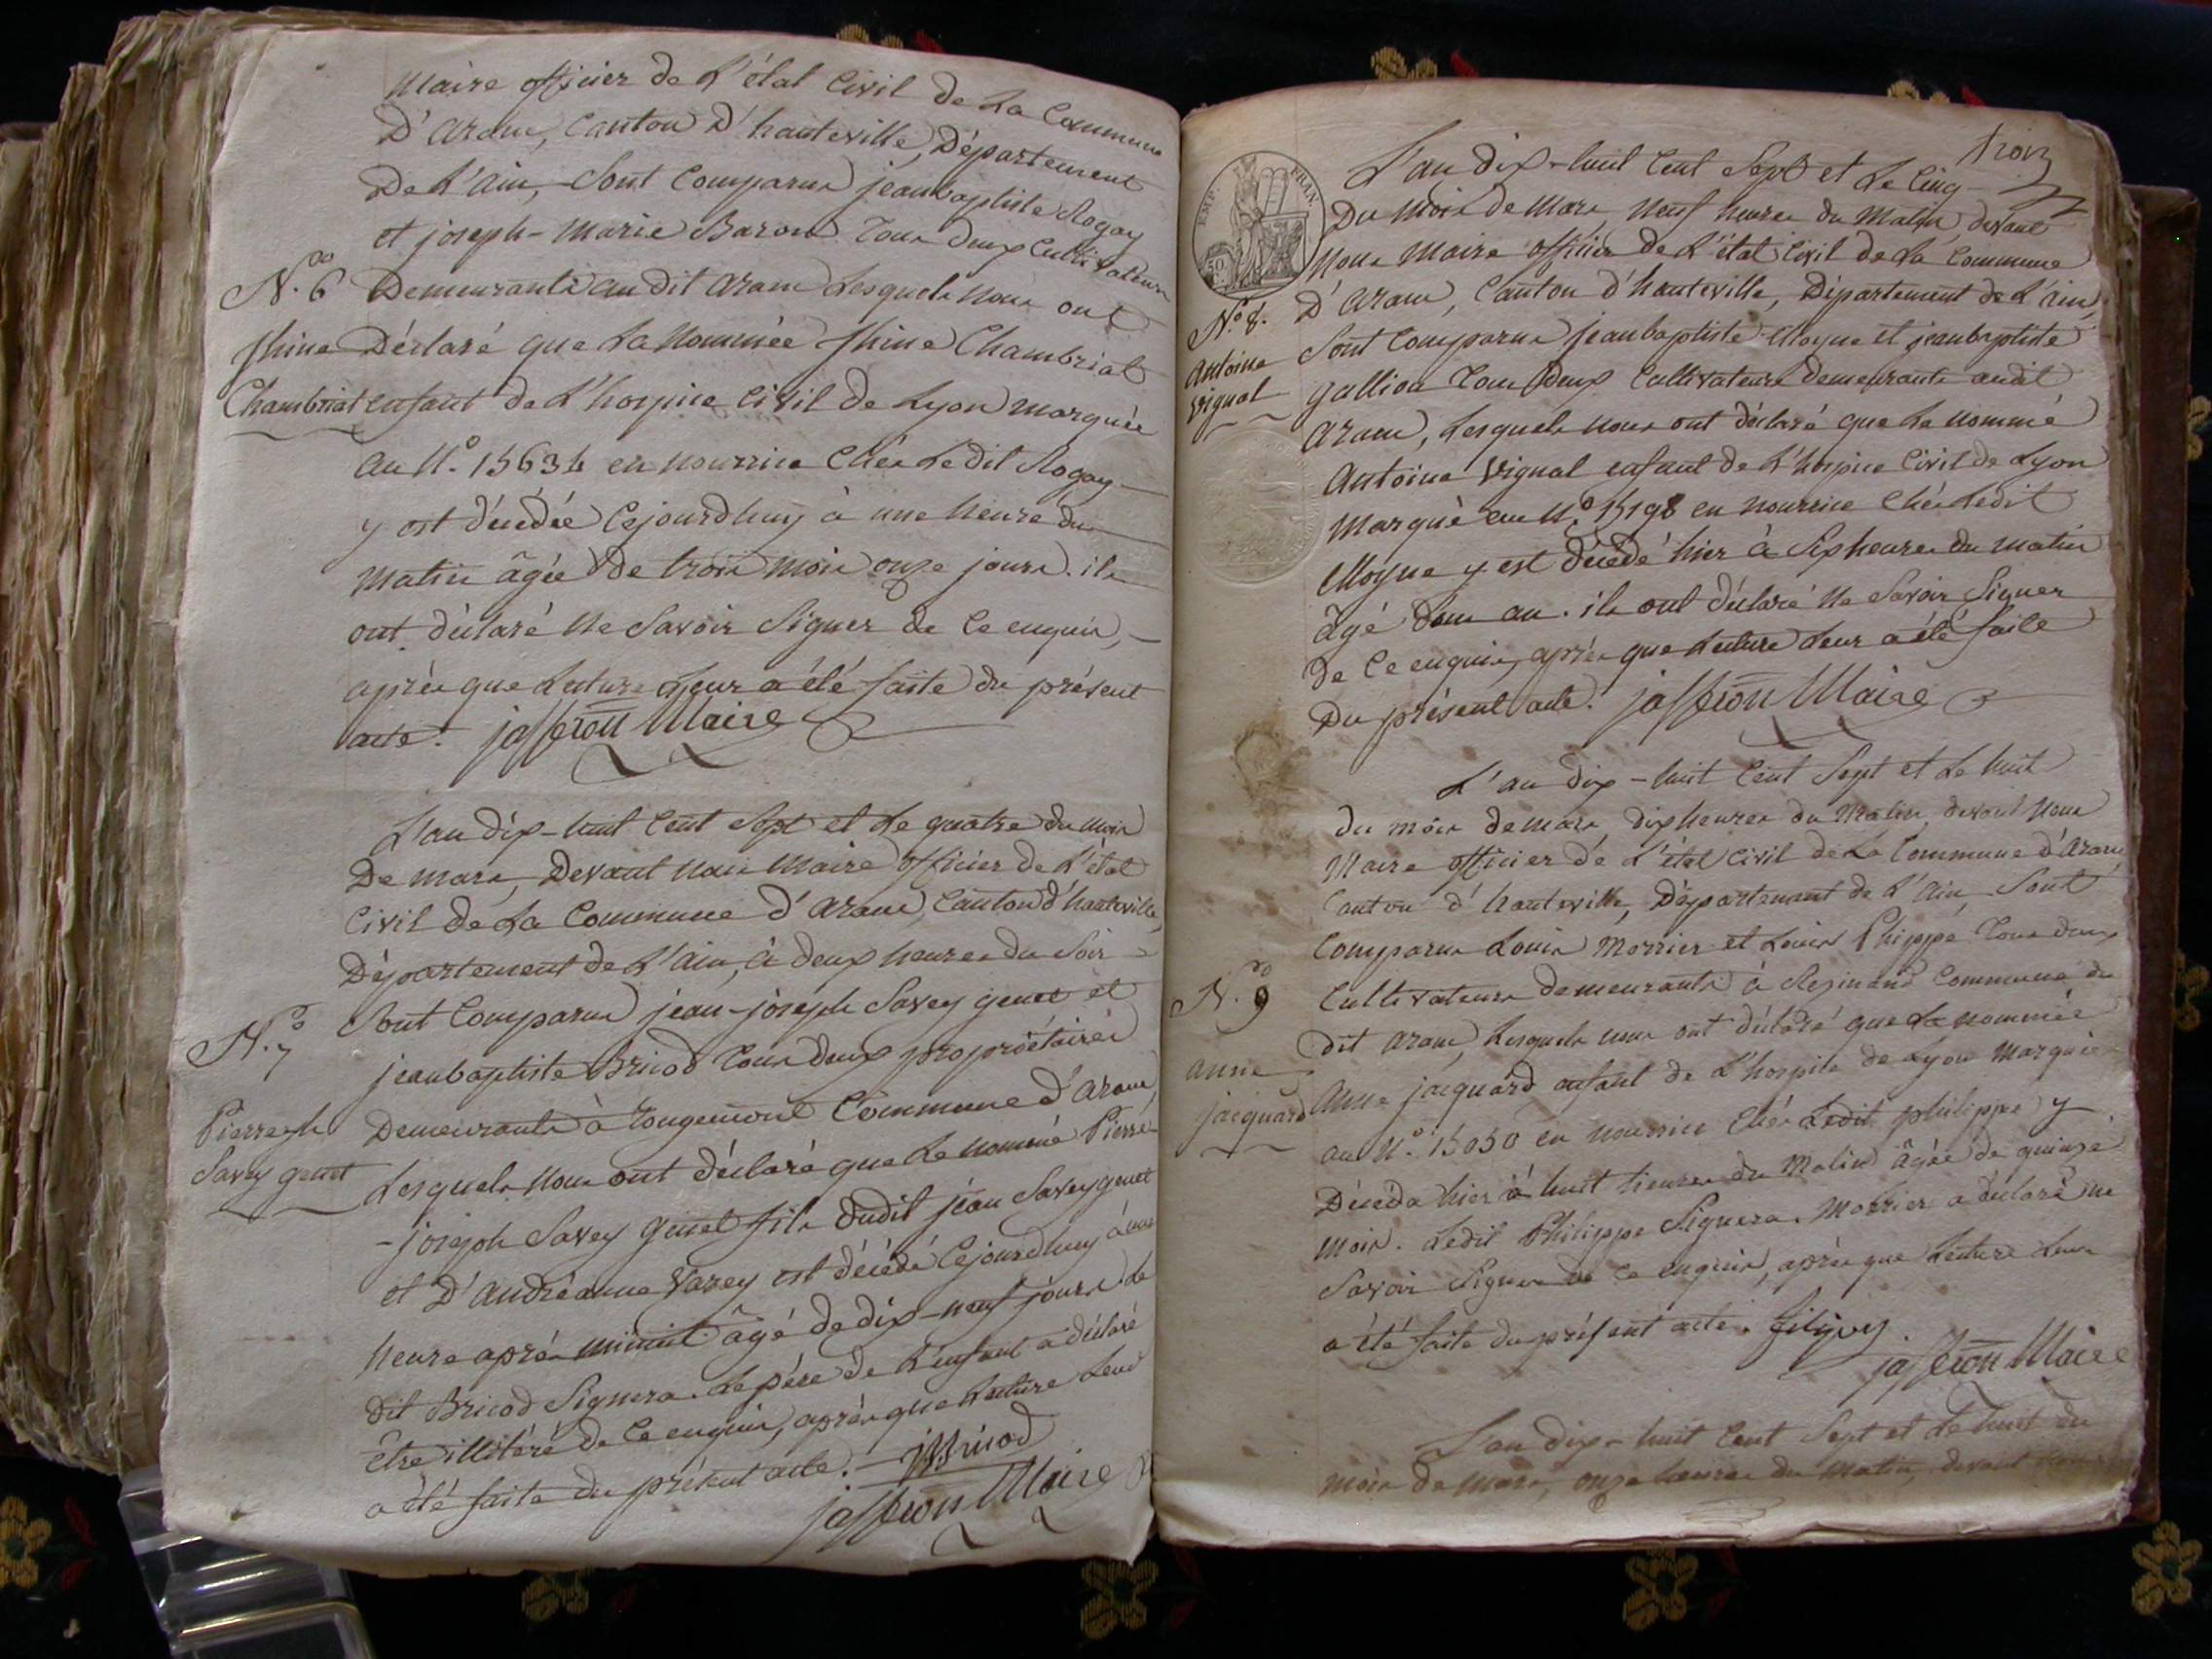 Maire officier de L'état Civil de La Commune
D'aranc, Canton D'hauteville, Département
De L'ain, Sont Comparus jeanbaptiste Rogay
et joseph-marie Baron Tous deux Cultivateurs
N.º 6 Demeurants au dit aranc Lesquels nous ont
Déclaré que La Nommée Chambriat
Chambriat enfant de L'hospice Civil de Lyon marquée
au N.º en nourrice chés Le dit Rogay
y est décédée Cejourdhuy à une heure du
matin âgée de trois mois onze jours. ils
ont déclaré ne Savoir Signer de Ce enquis,
après que Lecture Leur a été faite du présent
acte. jaffron Maire
L'an dix-huit Cent Sept et Le quatre du mois
De mars, Devant nous maire officier de L'état
Civil de La Commune d'aranc, Canton d'hauteville,
Département de L'ain, à deux heures du Soir
Sont Comparus jean-joseph Savey genet et
N.º 7
jeanbaptiste Bricod tous deux propriétaires
Demeurants à rougemont Commune d'aranc,
Pierre jh
Savey genet
Lesquels nous ont déclaré que Le nommé Pierre
-joseph Savey genet fils dudit jean Savey genet
et D'andréanne Varey est décédé Cejourdhuy à une
heure après minuit âgé de dix-neuf jours. Le
dit Bricod Signera. Le père de L'enfant a déclaré
être illitéré de Ce enquis, après que Lecture Leur
a été faite du présent acte. Bricod
jaffron Maire
trois
L'an dix-huit Cent Sept et Le Cinq
EMP. FRAN.
50
Du mois de mars neuf heures du Matin devant
Nous Maire officier de L'état Civil de La Commune
N.º 8. D'aranc, Canton d'hauteville, Département de L'ain,
Antoine
Vignal
Sont Comparus jeanbaptiste Moyne et jeanbaptiste
gallion Tous deux Cultivateurs demeurants audit
aranc, Lesquels nous ont déclaré que Le nommé
Antoine Vignal enfant de L'hospice Civil de Lyon
Marqué au N.º 15198 en nourrice Chés Ledit
Moyne y est décédé hier à Six heures du matin
âgé d'un an. ils ont déclaré ne Savoir Signer
de Ce enquis, après que Lecture Leur a été faite
Du présent acte. jaffron Maire
L'an dix-huit Cent Sept et Le huit
du mois de mars, dix heures du Matin, devant nous
Maire officier de L'état Civil de La Commune d'aranc
Canton d'hauteville, Département de L'ain, Sont
Comparus Louis Morrier et Louis Phippe Tous deux
N.º 9
Cultivateurs demeurants à Resinand Commune du
dit aranc, Lesquels nous ont déclaré que La nommée
anne
jacquard
anne jacquard enfant de L'hospice de Lyon Marquée
au N.º 15050 en nourrice Chés Ledit philippe y
Décéda hier à huit heures du Matin âgée de quinze
mois. Ledit Philippe Signera. Morrier a déclaré ne
Savoir Signer de Ce enquis, après que Lecture Leur
a été faite du présent acte. filipes
jaffron Maire
L'an dix-huit Cent Sept et Le huit du
mois de mars, onze heures du matin, devant nous